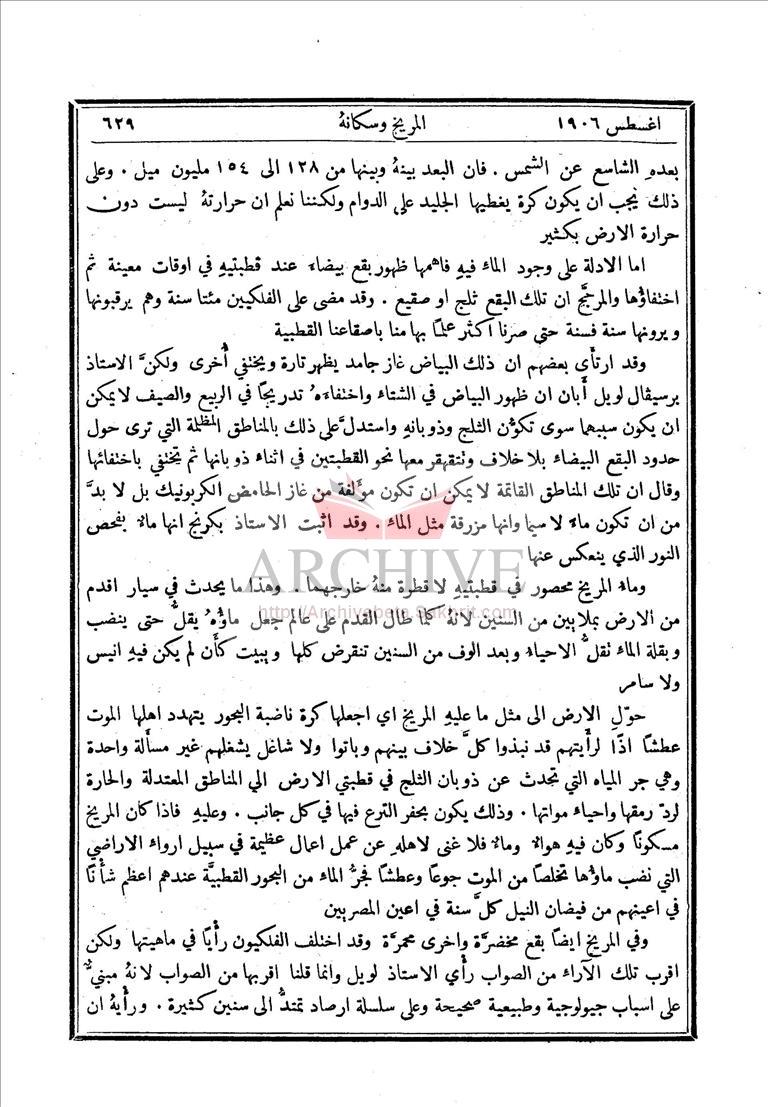 اغسطس ١٩٠٦ المريخ وسكانهُ ٦٢٩
بعدهِ الشاسع عن الشمس . فان البعد بينهُ وبينها من ١٢٨ الى ١٥٤ مليون ميل . وعلى
ذلك يجب ان يكون كرة يغطيها الجليد على الدوام ولكننا نعلم ان حرارتهُ ليست دون
حرارة الارض بكثير
اما الادلة على وجود الماء فيهِ فاهمها ظهور بقع بيضاء عند قطبتيهِ في اوقات معينة ثم
اختفاؤها والمرجَّح ان تلك البقع ثلج او صقيع . وقد مضى على الفلكيين مئتا سنة وهم يرقبونها
ويرونها سنة فسنة حتى صرنا اكثر علمًا بها منا باصقاعنا القطبية
وقد ارتأى بعضهم ان ذلك البياض غاز جامد يظهر تارة ويختفي أُخرى ولكنَّ الاستاذ
برسيڤال لويل أَبان ان ظهور البياض في الشتاء واختفاءهُ تدريجًا في الربيع والصيف لا يمكن
ان يكون سببهما سوى تكوُّن الثلج وذوبانهِ واستدلَّ على ذلك بالمناطق المظلمة التي ترى حول
حدود البقع البيضاء بلا خلاف وتتقهقر معها نحو القطبتين في اثناء ذوبانها ثم تختفي باختفائها
وقال ان تلك المناطق القاتمة لا يمكن ان تكون مؤَلفة من غاز الحامض الكربونيك بل لا بدَّ
من ان تكون ماءً لا سيما وانها مزرقة مثل الماء . وقد اثبت الاستاذ بكرنج انها ماءٌ بفحص
النور الذي ينعكس عنها
ARCHIVE
http://Archivebeta.Sakhrit.com
وماء المريخ محصور في قطبتيهِ لا قطرة منهُ خارجهما . وهذا ما يحدث في سيار اقدم
من الارض بملايين من السنين لانهُ كلما طال القدم على عالم جعل ماؤُهُ يقلُّ حتى ينضب
وبقلة الماء تقلُّ الاحياء وبعد الوف من السنين تنقرض كلها ويبيت كأَن لم يكن فيهِ انيس
ولا سامر
حوّلِ الارض الى مثل ما عليهِ المريخ اي اجعلها كرة ناضبة البحور يتهدد اهلها الموت
عطشًا اذًا لرأَيتهم قد نبذوا كلَّ خلاف بينهم وباتوا ولا شاغل يشغلهم غير مسأَلة واحدة
وهي جر المياه التي تحدث عن ذوبان الثلج في قطبتي الارض الى المناطق المعتدلة والحارة
لردّ رمقها واحياء مواتها . وذلك يكون بحفر الترع فيها في كل جانب . وعليهِ فاذا كان المريخ
مسكونًا وكان فيهِ هواءٌ وماءٌ فلا غنى لاهلهِ عن عمل اعمال عظيمة في سبيل ارواء الاراضي
التي نضب ماؤُها تخلصًا من الموت جوعًا وعطشًا فجرُّ الماء من البحور القطبيَّة عندهم اعظم شأْنًا
في اعينهم من فيضان النيل كلَّ سنة في اعين المصريين
وفي المريخ ايضًا بقع مخضرَّة واخرى محمرَّة وقد اختلف الفلكيون رأْيًا في ماهيتها ولكن
اقرب تلك الآراء من الصواب رأْي الاستاذ لويل وانما قلنا اقربها من الصواب لانهُ مبنيٌّ
على اسباب جيولوجية وطبيعية صحيحة وعلى سلسلة ارصاد تمتدُّ الى سنين كثيرة . ورأْيهُ ان